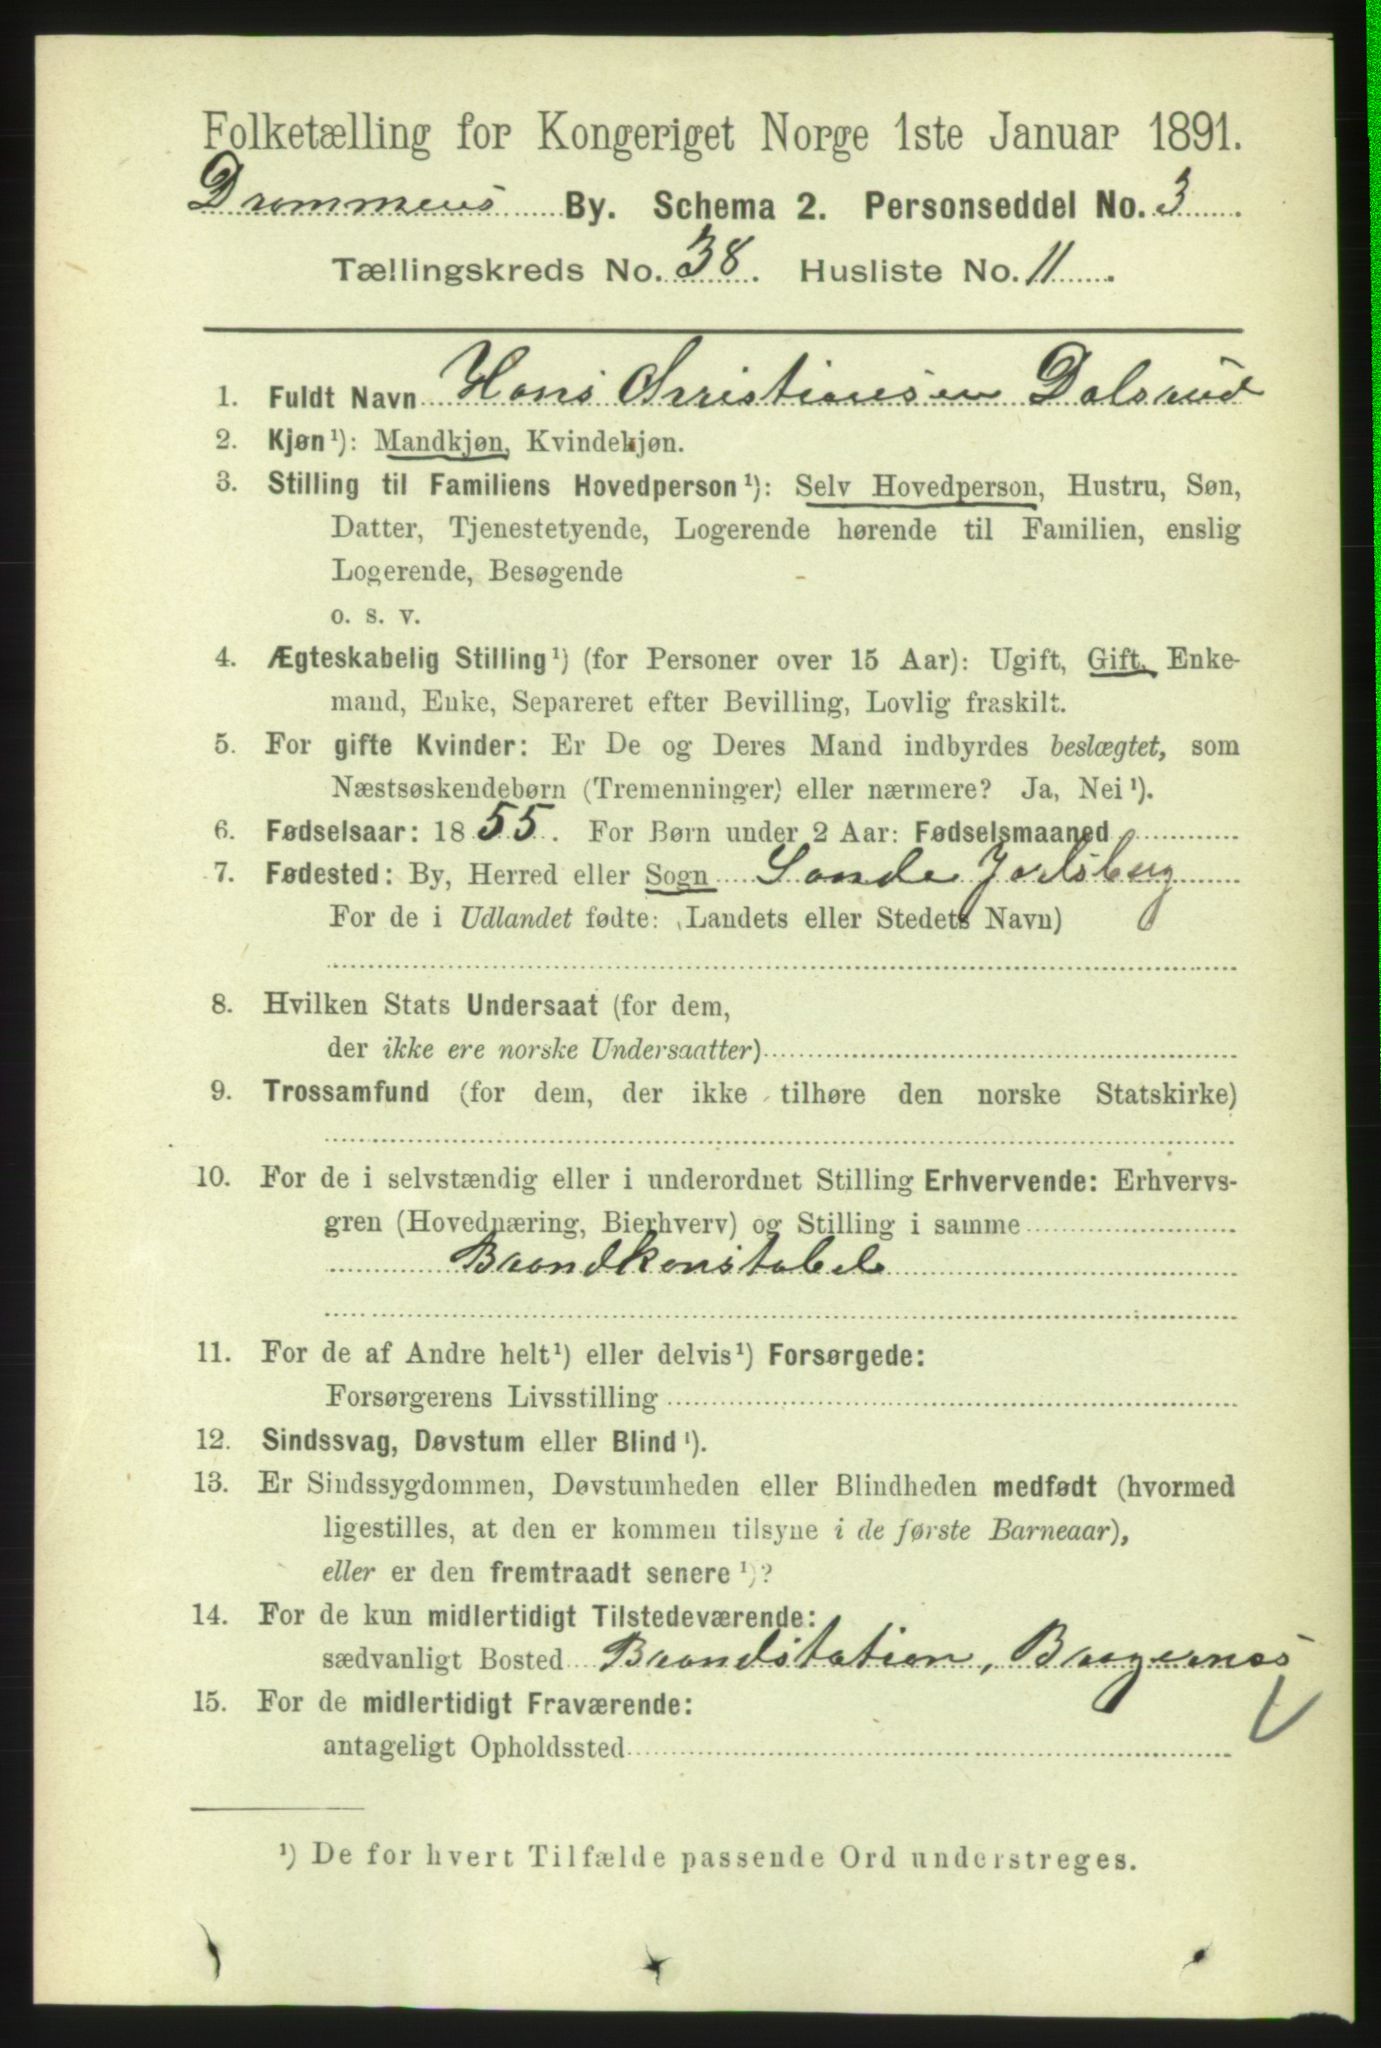 Folketælling for Kongeriget Norge 1ste Januar 1891.
Drammens By. Schema 2. Personseddel No. 3
Tællingskreds No. 38. Husliste No. 11.
1. Fuldt Navn Hans Christiansen Dalsrud
2. Kjøn¹): Mandkjøn, Kvindekjøn.
3. Stilling til Familiens Hovedperson¹): Selv Hovedperson, Hustru, Søn,
Datter, Tjenestetyende, Logerende hørende til Familien, enslig
Logerende, Besøgende
o. s. v.
4. Ægteskabelig Stilling¹) (for Personer over 15 Aar): Ugift, Gift, Enke-
mand, Enke, Separeret efter Bevilling, Lovlig fraskilt.
5. For gifte Kvinder: Er De og Deres Mand indbyrdes beslægtet, som
Næstsøskendebørn (Tremenninger) eller nærmere? Ja, Nei¹).
6. Fødselsaar: 1855. For Børn under 2 Aar: Fødselsmaaned
7. Fødested: By, Herred eller Sogn Sande Jarlsberg
For de i Udlandet fødte: (Landets eller Stedets Navn)
8. Hvilken Stats Undersaat (for dem,
der ikke ere norske Undersaatter)
9. Trossamfund (for dem, der ikke tilhøre den norske Statskirke)
10. For de i selvstændig eller i underordnet Stilling Erhvervende: Erhvervs-
gren (Hovednæring, Bierhverv) og Stilling i samme
Brandkonstabel
11. For de af Andre helt¹) eller delvis¹) Forsørgede:
Forsørgerens Livsstilling
12. Sindssvag, Døvstum eller Blind¹).
13. Er Sindssygdommen, Døvstumheden eller Blindheden medfødt (hvormed
ligestilles, at den er kommen tilsyne i de første Barneaar),
eller er den fremtraadt senere¹)?
14. For de kun midlertidigt Tilstedeværende:
sædvanligt Bosted Brandstation, Bragernes
15. For de midlertidigt Fraværende:
antageligt Opholdssted
¹) De for hvert Tilfælde passende Ord understreges.